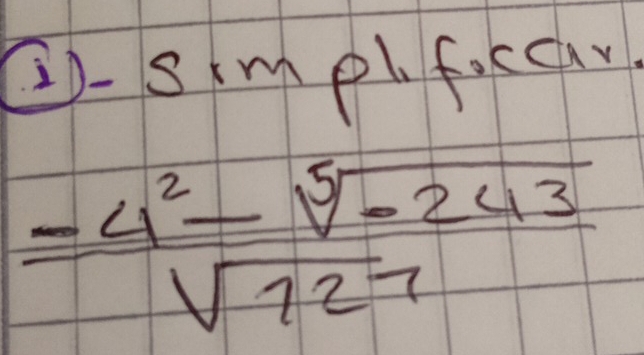 1)- Simplificar.
-4² - ⁵√-243
√121